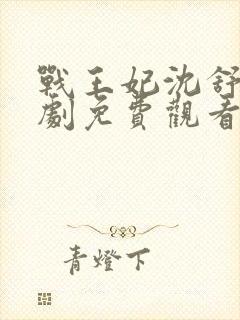 戰王妃沈舒
劇免費觀看
青燈下